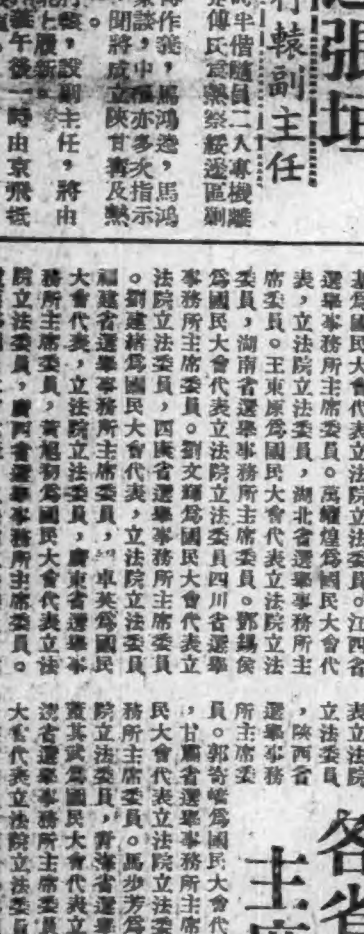 張垣
行轅副主任
武半偕隨員二人專機離
傅氏爲熱察綏邊區剿
傅作義，馬鴻逵，馬鴻
來談，中樞亦多次指示
聞將成立陝甘寧及熱
。
行轅，設副主任，將由
北上履新。
義午後一時由京飛抵
爲國民大會代表立法院立法委員。江西省
選舉事務所主席委員。萬耀煌爲國民大會代
表，立法院立法委員，湖北省選舉事務所主
席委員。王東原爲國民大會代表立法院立法
委員，湖南省選舉事務所主席委員。鄧錫侯
爲國民大會代表立法院立法委員四川省選舉
事務所主席委員。劉文輝爲國民大會代表立
法院立法委員，西康省選舉事務所主席委員
。劉建緒爲國民大會代表，立法院立法委員
福建省選舉事務所主席委員，卓英爲國民
大會代表，立法院立法委員，廣東省選舉事
務所主席委員，黃旭初爲國民大會代表立法
院立法委員，廣西省選舉事務所主席委員。
各省
主席
表立法院
立法委員
，陝西省
選舉事務
所主席委
員。郭寄嶠爲國民大會代
，甘肅省選舉事務所主席
民大會代表立法院立法委
務所主席委員。馬步芳爲
院立法委員，青海省選舉
董其武爲國民大會代表立
遠省選舉事務所主席委員
大會代表立法院立法委員